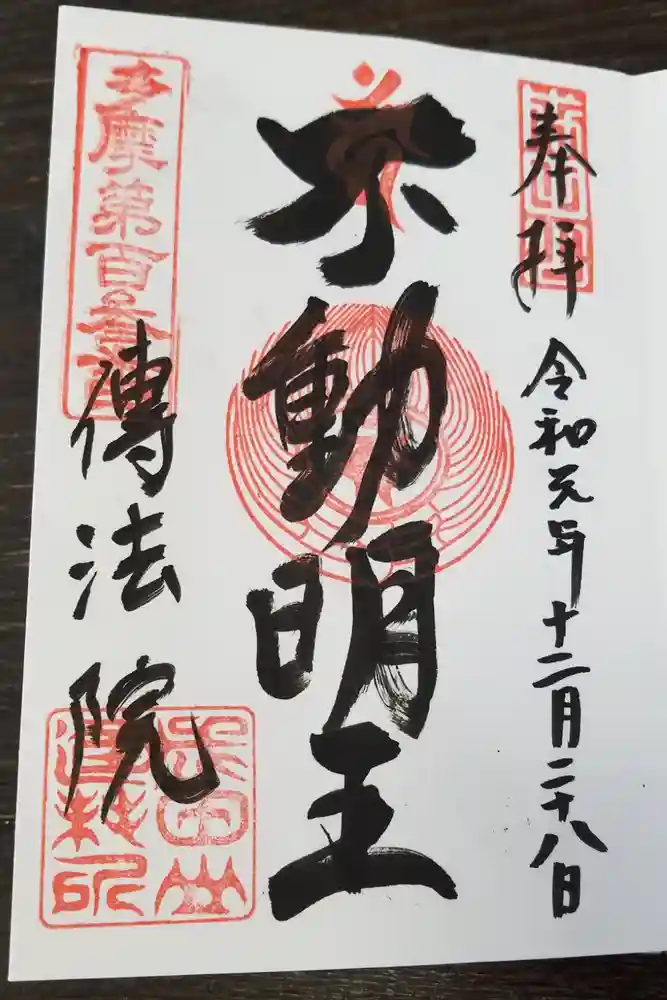 奉拝
令和元年十二月二十八日
不動明王
多摩第百番
傳法院